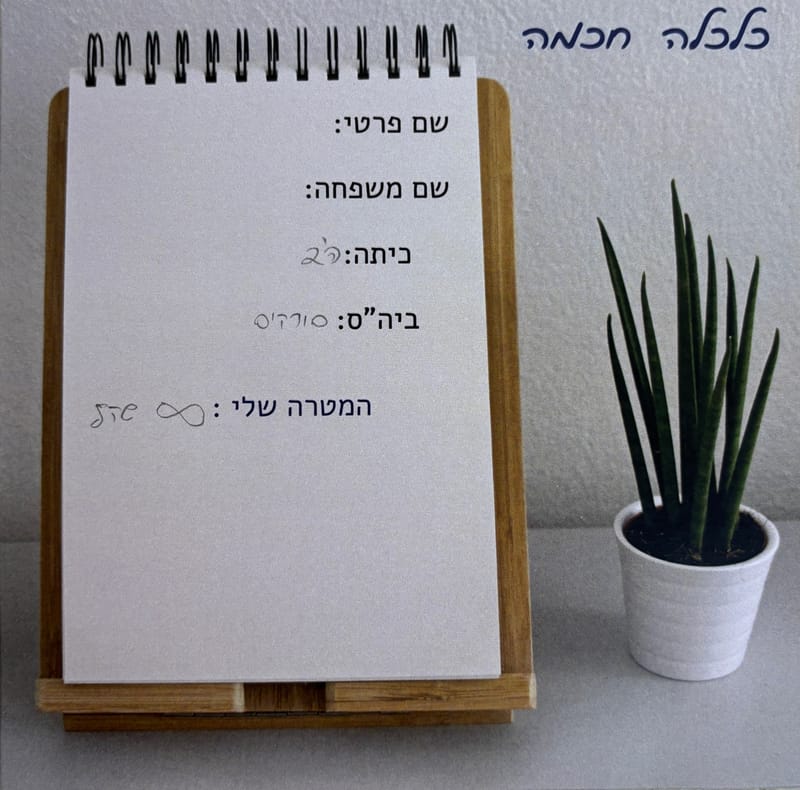 כלכלה חכמה
שם פרטי:
שם משפחה:
כיתה: ה'2
ביה"ס: סורקיס
המטרה שלי: ∞